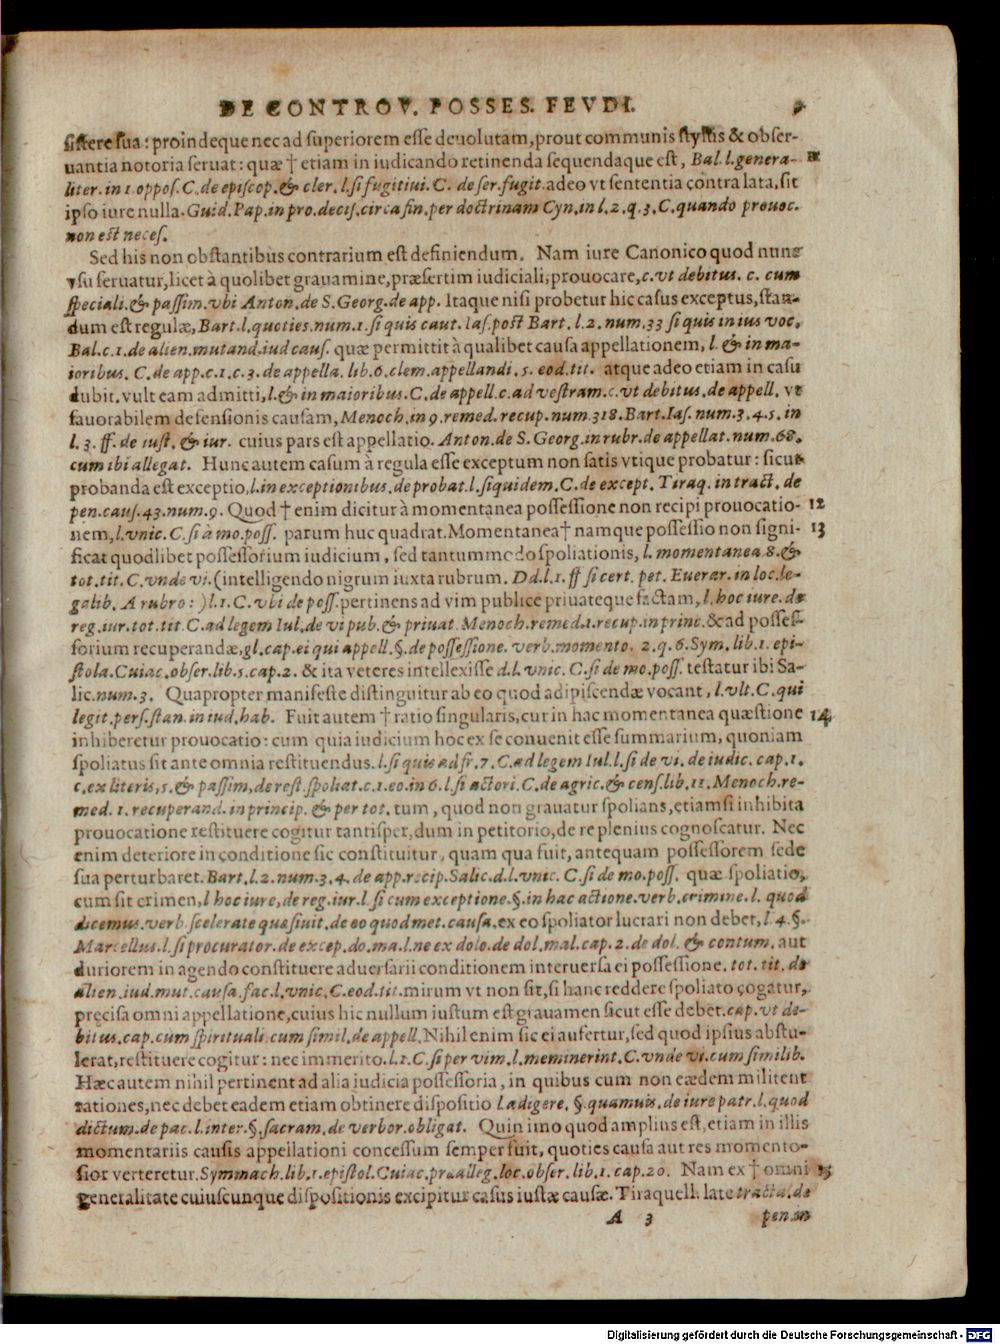 DE CONTROV. POSSES. FEVDI.
sistere sua: proindeque nec ad superiorem esse deuolutam, prout communis stylus & obser-
uantia notoria seruat: quæ † etiam in iudicando retinenda sequendaque est, Bal. l. genera-
liter. in 1. oppos. C. de episcop. & cler. l. si fugitiui. C. de ser. fugit. adeo vt sententia contra lata, sit
ipso iure nulla. Guid. Pap. in pro. decis. circa fin. per doctrinam Cyn. in l. 2. q. 3. C. quando prouoc.
non est neces.
Sed his non obstantibus contrarium est definiendum. Nam iure Canonico quod nunc
vsu seruatur, licet à quolibet grauamine, præsertim iudiciali, prouocare, c. vt debitus. c. cum
speciali. & passim. vbi Anton. de S. Georg. de app. Itaque nisi probetur hic casus exceptus, stan-
dum est regulæ, Bart. l. quoties. num. 1. si quis caut. Ias. post Bart. l. 2. num. 33 si quis in ius voc.
Bal. c. 1. de alien. mutand. iud caus. quæ permittit à qualibet causa appellationem, l. & in ma-
ioribus. C. de app. c. 1. c. 3. de appella. lib. 6. clem. appellandi. 5. eod. tit. atque adeo etiam in casu
dubit. vult eam admitti, l. & in maioribus. C. de appell. c. ad vestram. c. vt debitus. de appell. vt
fauorabilem defensionis causam, Menoch. in 9. remed. recup. num. 318. Bart. Ias. num. 3. 4. 5. in
l. 3. ff. de iust. & iur. cuius pars est appellatio. Anton. de S. Georg. in rubr. de appellat. num. 68.
cum ibi allegat. Hunc autem casum à regula esse exceptum non satis vtique probatur: sicut
probanda est exceptio, l. in exceptionibus. de probat. l. siquidem. C. de except. Tiraq. in tract. de
pen. caus. 43. num. 9. Quod † enim dicitur à momentanea possessione non recipi prouocatio- 12
nem, l. vnic. C. si à mo. poss. parum huc quadrat. Momentanea † namque possessio non signi- 13
ficat quodlibet possessorium iudicium, sed tantummodo spoliationis, l. momentanea. 8. &
tot. tit. C. vnde vi. (intelligendo nigrum iuxta rubrum. Dd. l. 1. ff si cert. pet. Euerar. in loc. le-
galib. A rubro:) l. 1. C. vbi de poss. pertinens ad vim publice priuateque factam, l. hoc iure. de
reg. iur. tot. tit. C. ad legem Iul. de vi pub. & priuat. Menoch. remed. 1. recup. in princ. & ad posses-
sorium recuperandæ, gl. cap. ei qui appell. §. de possessione. verb. momento. 2. q. 6. Sym. lib. 1. epi-
stola. Cuiac. obser. lib. 5. cap. 2. & ita veteres intellexisse d. l. vnic. C. si de mo. poss. testatur ibi Sa-
lic. num. 3. Quapropter manifeste distinguitur ab eo quod adipiscendæ vocant, l. vlt. C. qui
legit. pers. stan. in iud. hab. Fuit autem † ratio singularis, cur in hac momentanea quæstione 14
inhiberetur prouocatio: cum quia iudicium hoc ex se conuenit esse summarium, quoniam
spoliatus sit ante omnia restituendus. l. si quis ad fr. 7. C. ad legem Iul. l. si de vi. de iudic. cap. 1.
c. ex literis, 5. & passim, de rest. spoliat. c. 1. eo. in 6. l. si actori. C. de agric. & cens. lib. 11. Menoch. re-
med. 1. recuperand. in princip. & per tot. tum, quod non grauatur spolians, etiamsi inhibita
prouocatione restituere cogitur tantisper, dum in petitorio, de re plenius cognoscatur. Nec
enim deteriore in conditione sic constituitur, quam qua fuit, antequam possessorem sede
sua perturbaret. Bart. l. 2. num. 3. 4. de app. recip. Salic. d. l. vnic. C. si de mo. poss. quæ spoliatio,
cum sit crimen, l hoc iure, de reg. iur. l. si cum exceptione. §. in hac actione. verb. crimine. l. quod
dicemus. verb. scelerate quæsiuit. de eo quod met. causa. ex eo spoliator lucrari non debet, l. 4. §.
Marcellus. l. si procurator. de excep. do. ma. l. ne ex dolo. de dol. mal. cap. 2. de dol. & contum. aut
duriorem in agendo constituere aduersarii conditionem interuersa ei possessione. tot. tit. de
alien. iud. mut. causa. fac. l. vnic. C. eod. tit. mirum vt non sit, si hanc reddere spoliato cogatur,
precisa omni appellatione, cuius hic nullum iustum est grauamen sicut esse debet. cap. vt de-
bitus. cap. cum spirituali. cum simil. de appell. Nihil enim sic ei aufertur, sed quod ipsius abstu-
lerat, restituere cogitur: nec immerito. l. 1. C. si per vim. l. meminerint. C. vnde vi. cum similib.
Hæc autem nihil pertinent ad alia iudicia possessoria, in quibus cum non eædem militent
rationes, nec debet eadem etiam obtinere dispositio l. adigere. §. quamuis. de iure patr. l. quod
dictum. de pac. l. inter. §. sacram. de verbor. obligat. Quin imo quod amplius est, etiam in illis
momentariis causis appellationi concessum semper fuit, quoties causa aut res momento-
sior verteretur. Symmach. lib. 1. epistol. Cuiac. præalleg. loc. obser. lib. 1. cap. 20. Nam ex † omni 15
generalitate cuiuscunque dispositionis excipitur casus iustæ causæ. Tiraquell. late tracta. de
A 3 pen. in
Digitalisierung gefördert durch die Deutsche Forschungsgemeinschaft - DFG